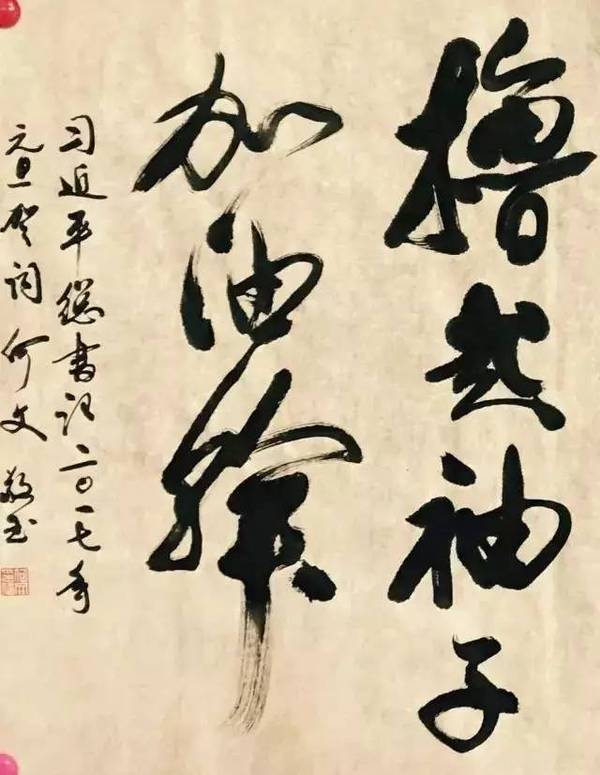 撸起袖子
加油幹
习近平總書记二〇一七年
元旦贺词 何文 敬书